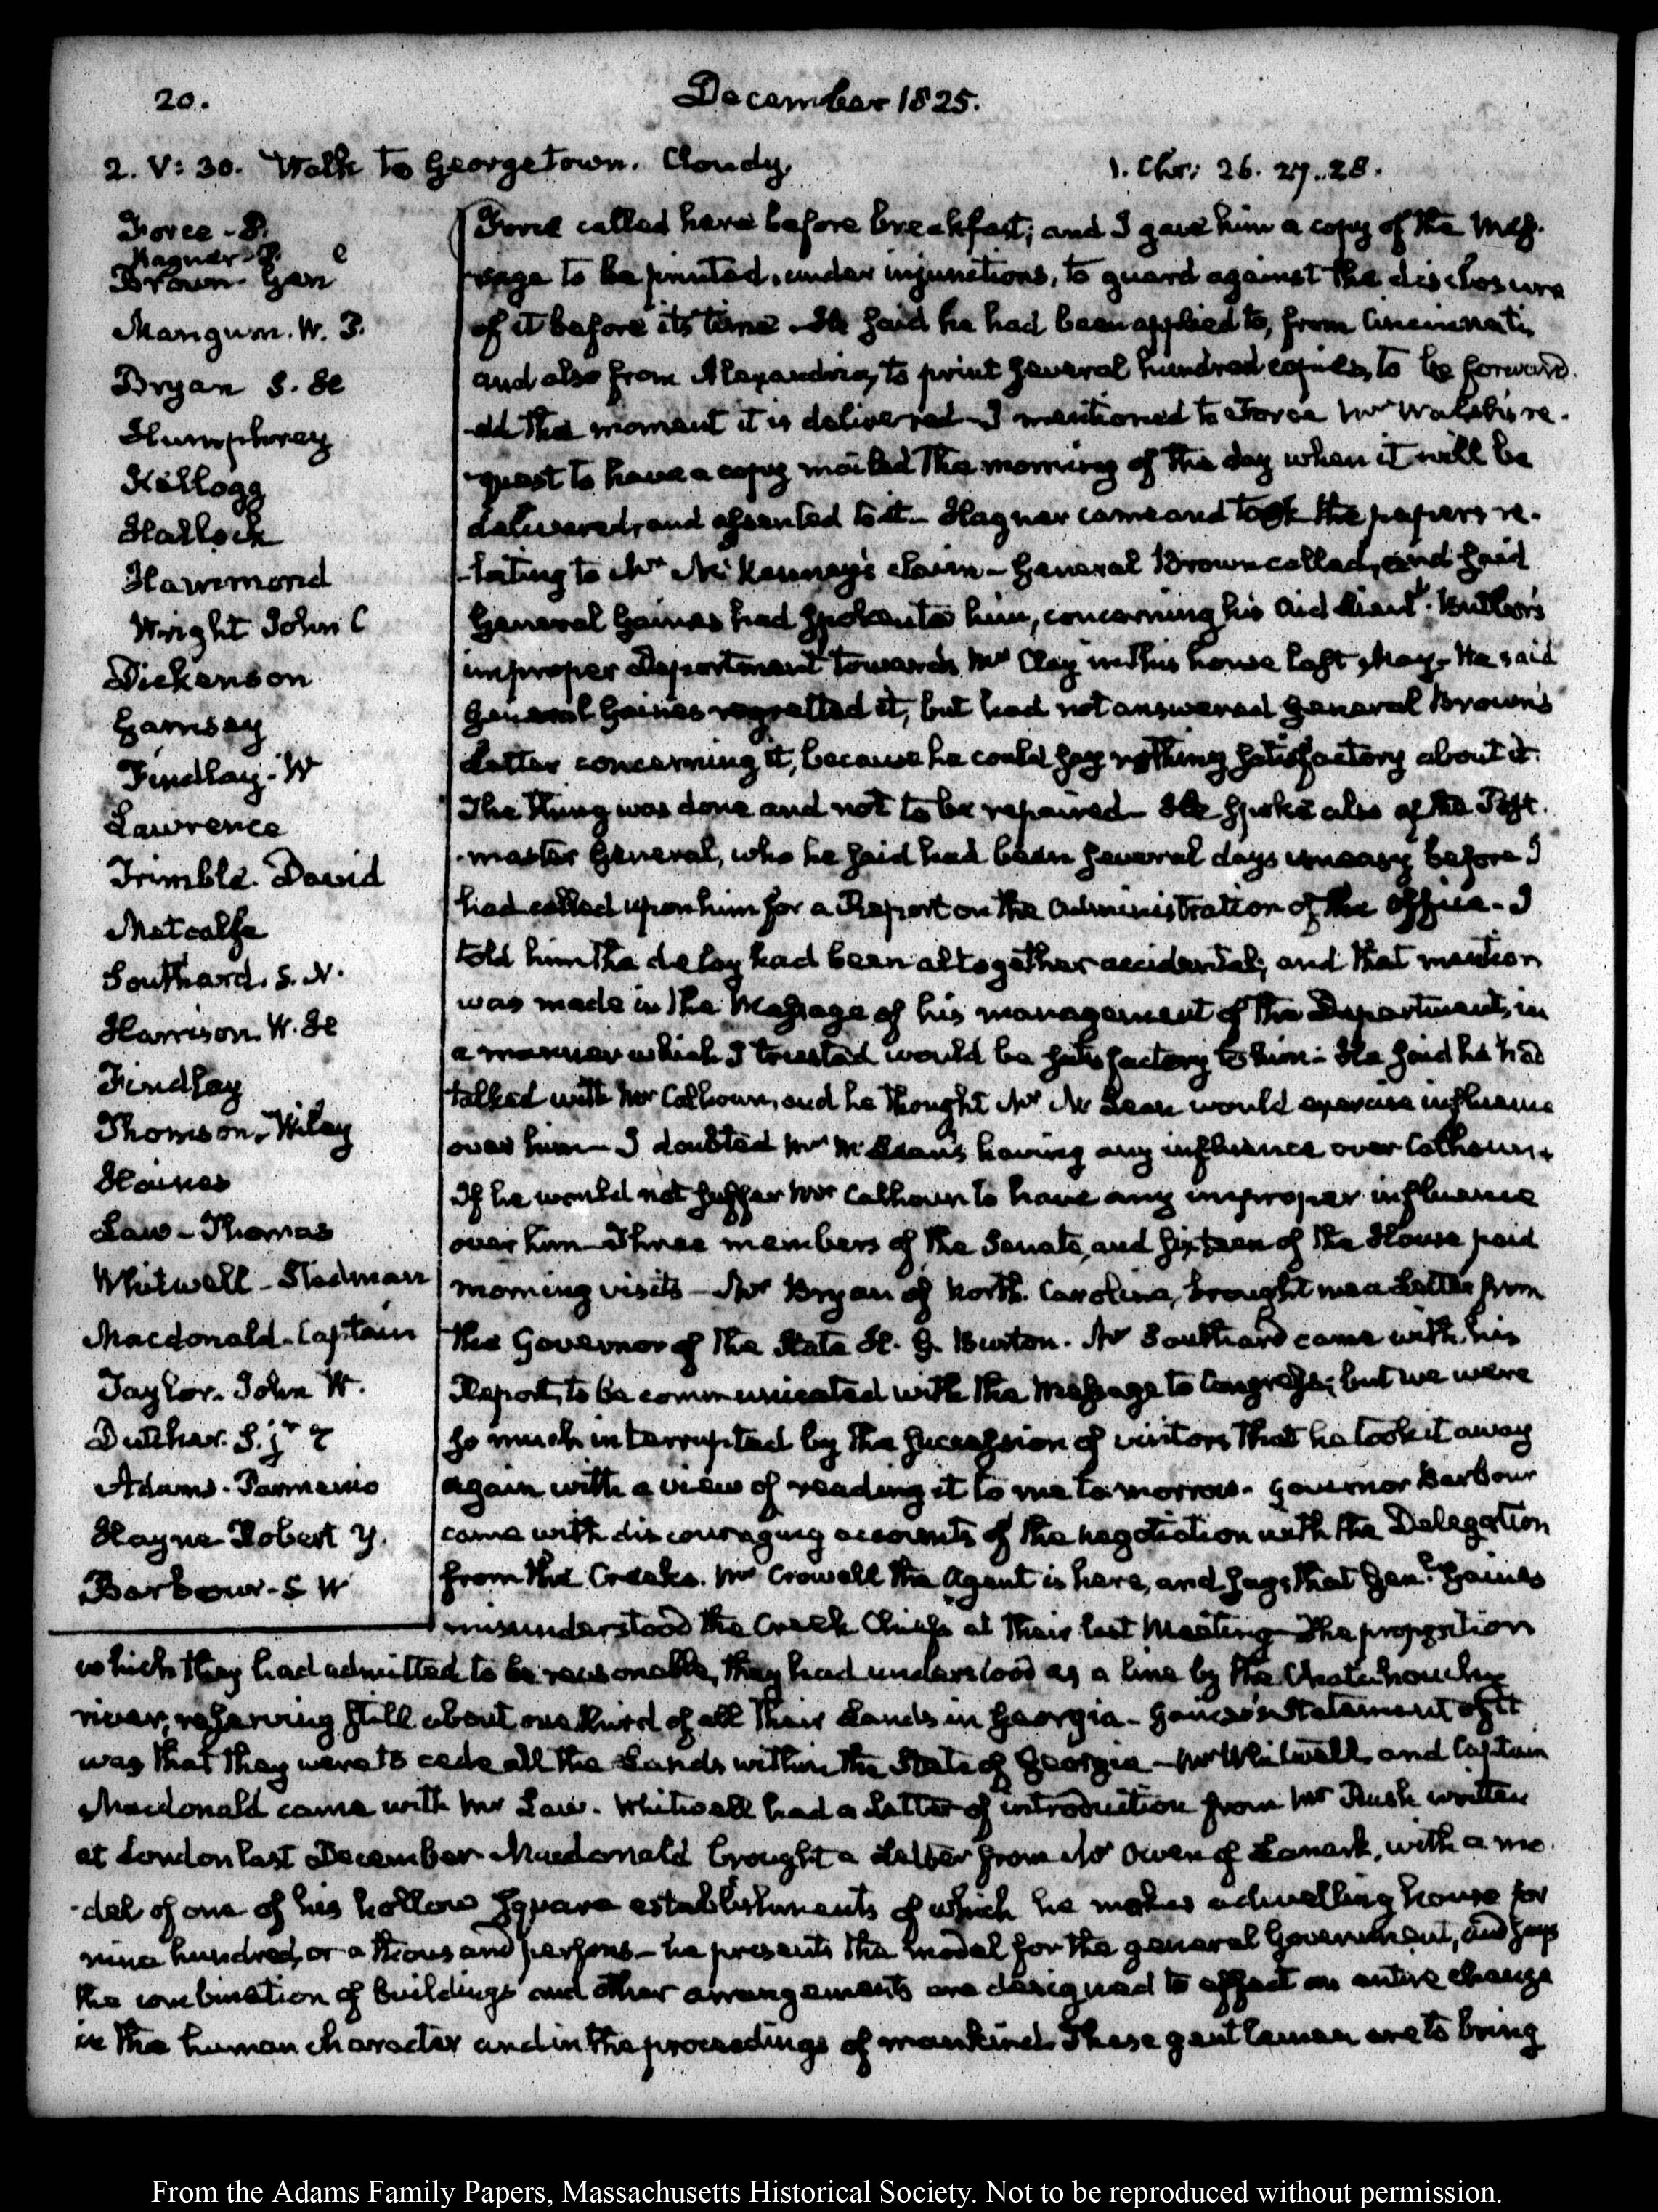 20.
December 1825.
2. V: 30. Walk to Georgetown. Cloudy.
1. Chr: 26. 27. 28.
Force - P.
Hagner P.
Brown Gen
Mangum. W. P.
Bryan J. H
Humphrey
Kellogg
Hallock
Hammond
Wright John C
Dickenson
Garnsey
Findlay - W
Lawrence
Trimble. David
Metcalfe
Southard. S. N.
Harrison. W. H
Findlay
Thomson. Wiley
Haines
Law - Thomas
Whitwell - Stedman
Macdonald - Captain
Taylor. John W.
Dutcher. S. jr
Adams - Parmenio
Hayne Robert Y.
Barbour - S W
Force called here before breakfast; and I gave him a copy of the Mes-
-sage to be printed, under injunctions, to guard against the disclosure
of it before its time. He said he had been applied to, from Cincinnati,
and also from Alexandria, to print several hundred copies, to be forward-
-ed the moment it is delivered - I mentioned to Force Mr Walsh's re-
-quest to have a copy mailed the morning of the day when it will be
delivered, and assented to it - Hagner came and took the papers re-
-lating to Mr McKenney's claim - General Brown called, and said
General Gaines had spoken to him, concerning his aid Lieut. Butler's
improper deportment towards Mr Clay in this house last May. He said
General Gaines regretted it, but had not answered General Brown's
Letter concerning it, because he could say nothing satisfactory about it.
The thing was done and not to be repaired - He spoke also of the Post-
-master General, who he said had been several days uneasy before I
had called upon him for a Report on the Administration of the Office - I
told him the delay had been altogether accidental; and that mention
was made in the Message of his management of the Department, in
a manner which I trusted would be satisfactory to him - He said he had
talked with Mr Calhoun, and he thought Mr McLean would exercise influence
over him - I doubted Mr McLean's having any influence over Calhoun +
If he would not suffer Mr Calhoun to have any improper influence
over him - Three members of the Senate, and sixteen of the House paid
morning visits - Mr Bryan of North Carolina, brought me a Letter from
the Governor of the State H. G. Burton. Mr Southard came with his
Report, to be communicated with the Message to Congress; but we were
so much interrupted by the succession of visitors that he took it away
again with a view of reading it to me to-morrow. Governor Barbour
came with discouraging accounts of the negotiation with the Delegation
from the Creeks. Mr Crowell the Agent is here, and says that Genl. Gaines
misunderstood the Creek Chiefs at their last Meeting - The proposition
which they had admitted to be reasonable, they had understood as a line by the Chatahouchy
river, reserving still about one third of all their Lands in Georgia - Gaines's Statement of it
was that they were to cede all the Lands within the State of Georgia - Mr Whitwell, and Captain
Macdonald came with Mr Law. Whitwell had a Letter of introduction from Mr Rush written
at London last December Macdonald brought a Letter from Mr Owen of Lanark, with a mo-
-del of one of his hollow square establishments of which he makes a dwelling house for
nine hundred, or a thousand persons - he presents the model for the general Government, and says
the combination of buildings and other arrangements are designed to effect an entire change
in the human character and in the proceedings of mankind. These gentlemen are to bring
From the Adams Family Papers, Massachusetts Historical Society. Not to be reproduced without permission.